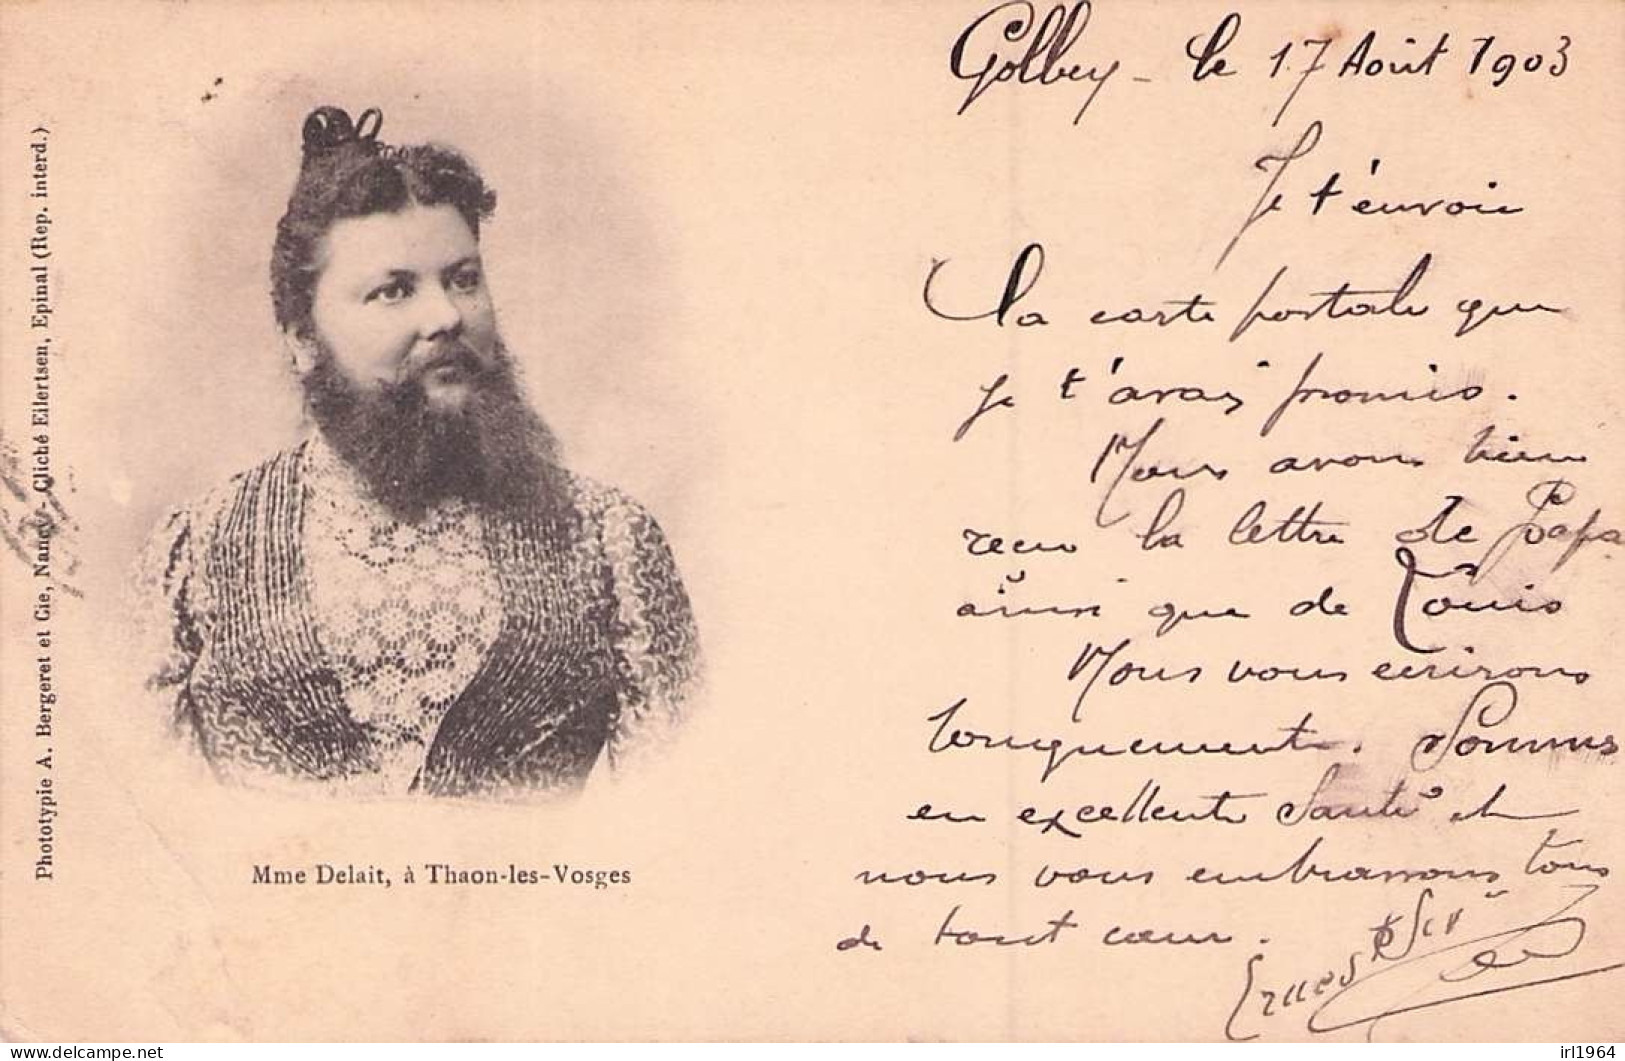 Phototypie A. Bergeret et Cie, Nancy - Cliché Eilertsen, Epinal (Rep. interd.)
Mme Delait, à Thaon-les-Vosges
Golbey - le 17 Août 1903
Je t'envoie
la carte postale que
je t'avais promis.
Nous avons bien
reçu la lettre de Papa
ainsi que de Louis
Nous vous ecrirons
longuement. Sommes
en excellente santé et
nous vous embrassons tous
de tout cœur.
Ernest
irl1964